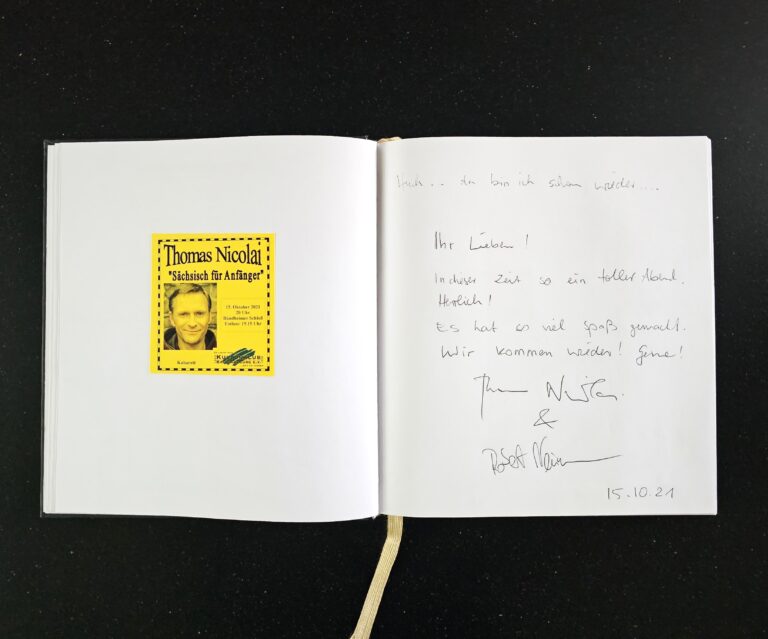 Thomas Nicolai
"Sächsisch für Anfänger"
15. Oktober 2021
20 Uhr
Bündheimer Schloß
Einlass: 19.15 Uhr
Kabarett
Huch.. da bin ich schon wieder....
Ihr Lieben!
In dieser Zeit so ein toller Abend.
Herrlich!
Es hat so viel Spaß gemacht.
Wir kommen wieder! Gerne!
Thomas Nicolai
&
Robert
15.10.21